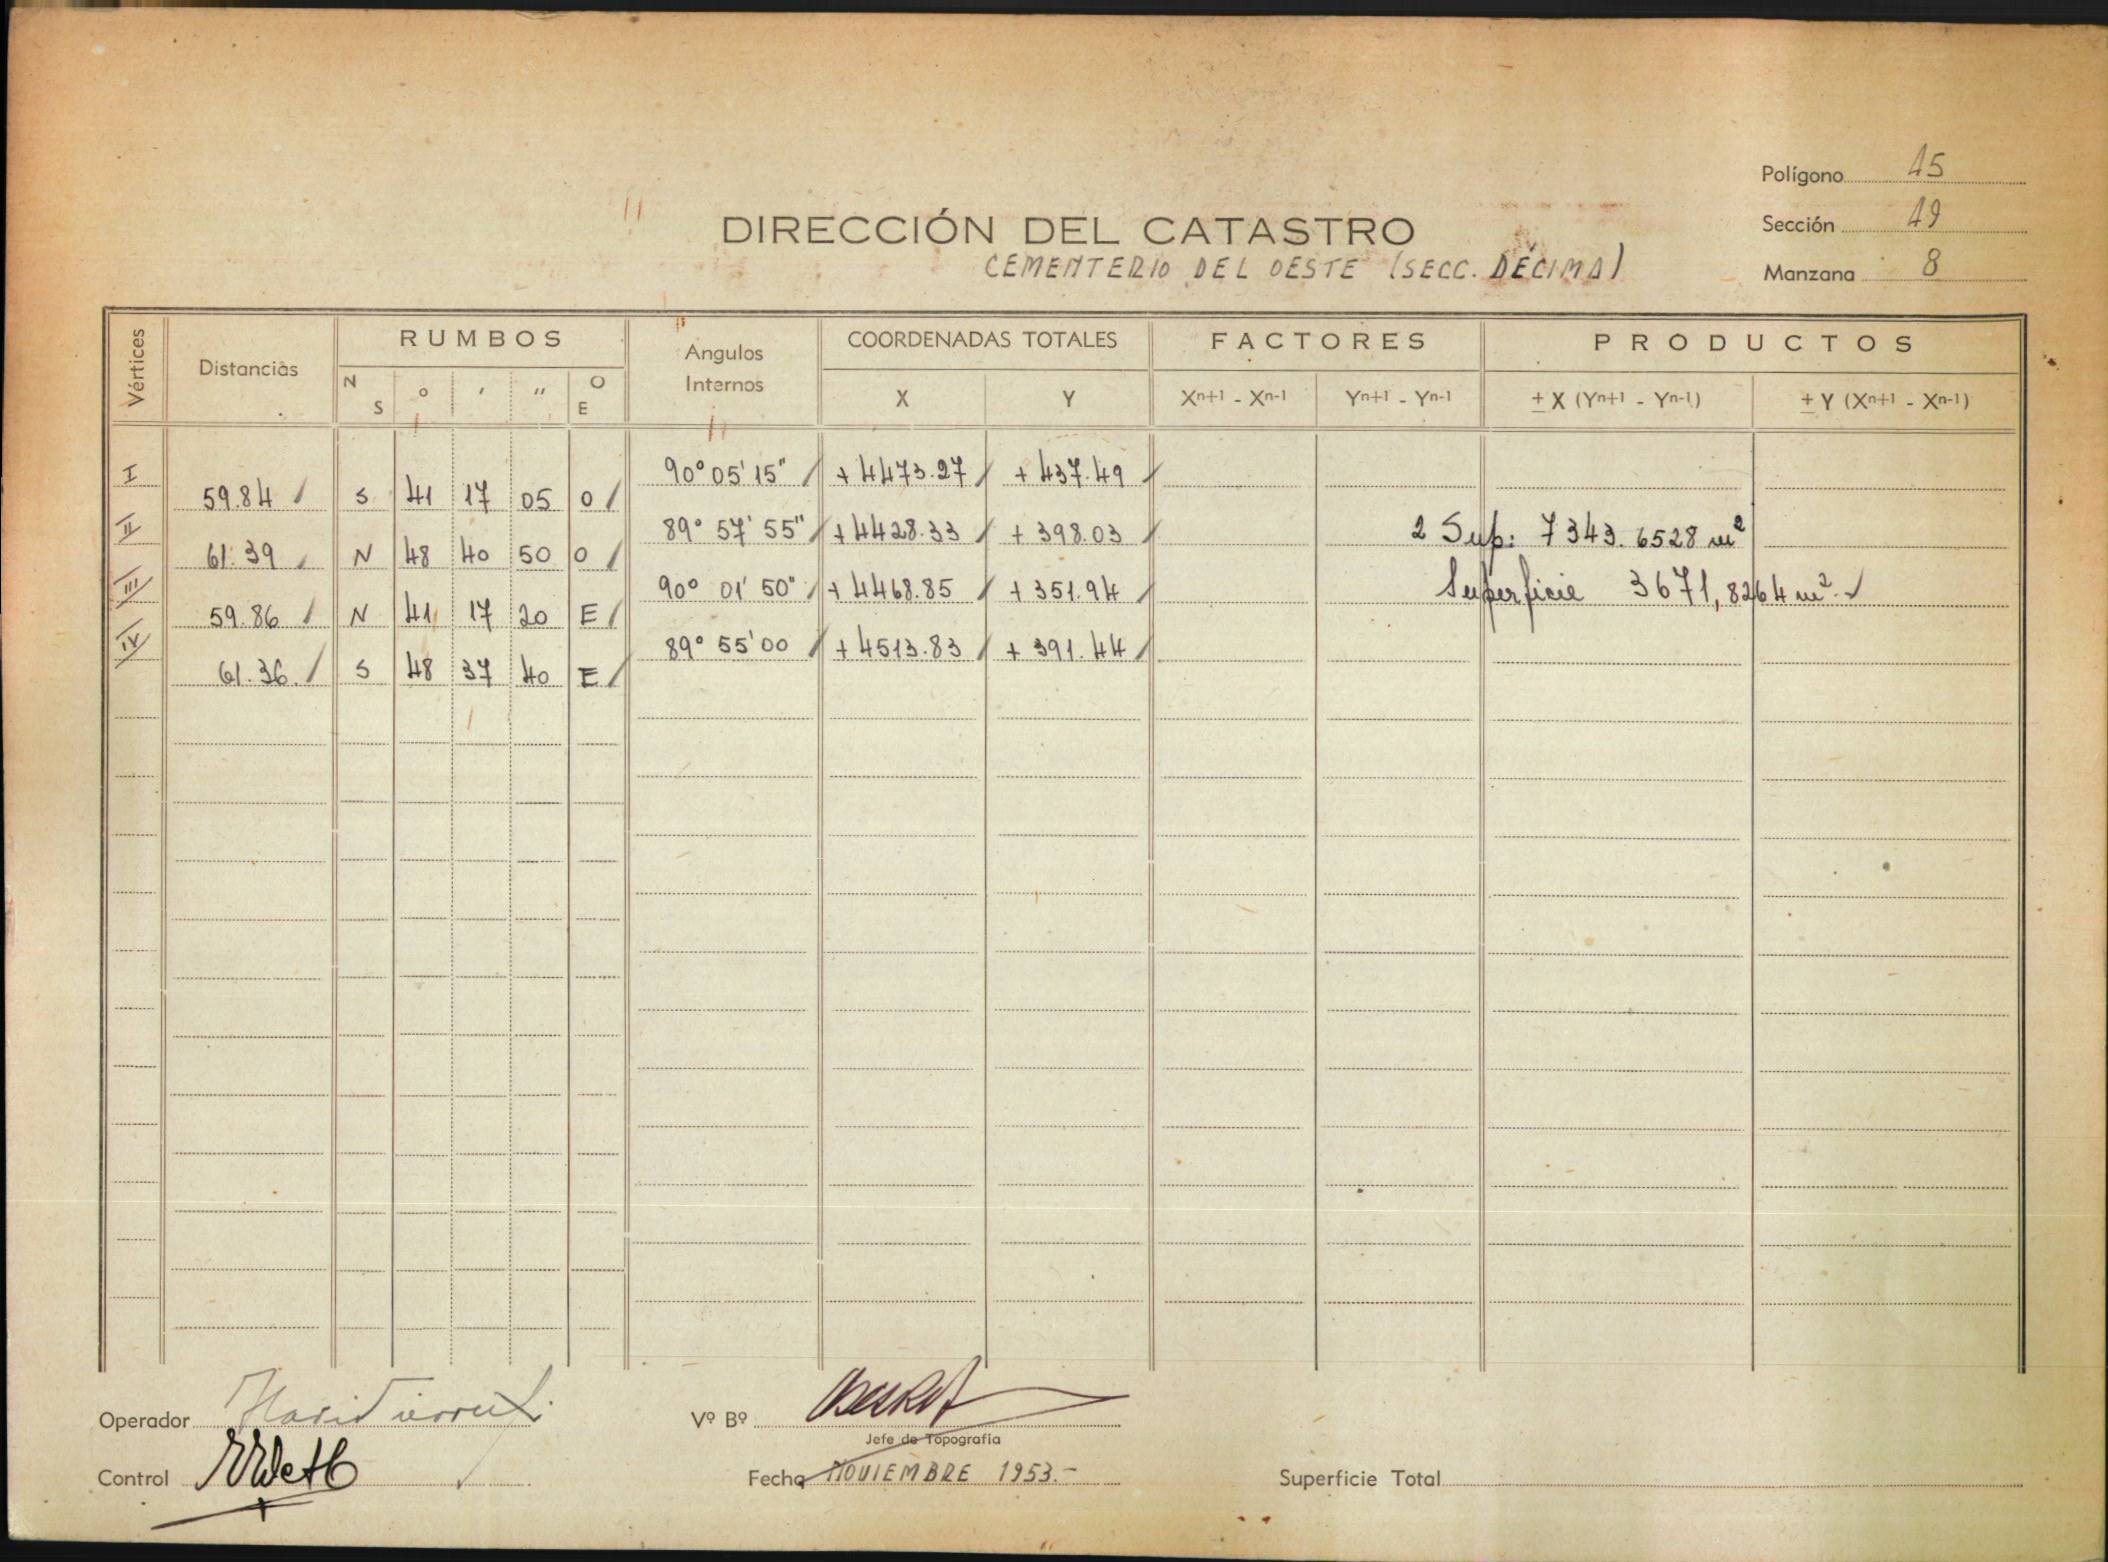 Polígono 15
Sección 19
Manzana 8
DIRECCIÓN DEL CATASTRO
CEMENTERIO DEL OESTE (SECC. DÉCIMA)
Vértices Distancias RUMBOS Angulos Internos COORDENADAS TOTALES FACTORES PRODUCTOS
N S ° ' " O E X Y Xn+1 - Xn-1 Yn+1 - Yn-1 ± X (Yn+1 - Yn-1) ± Y (Xn+1 - Xn-1)
I 90° 05' 15" + 4473.27 + 437.49
59.84 S 41 17 05 O
II 89° 57' 55" + 4428.33 + 398.03 2 Sup: 7343.6528 m²
61.39 N 48 40 50 O
III 90° 01' 50" + 4468.85 + 351.94 Superficie 3671,8264 m².
59.86 N 41 17 20 E
IV 89° 55' 00 + 4513.83 + 391.44
61.36. S 48 37 40 E
Operador
Vº Bº
Jefe de Topografía
Control
Fecha NOVIEMBRE 1953.-
Superficie Total